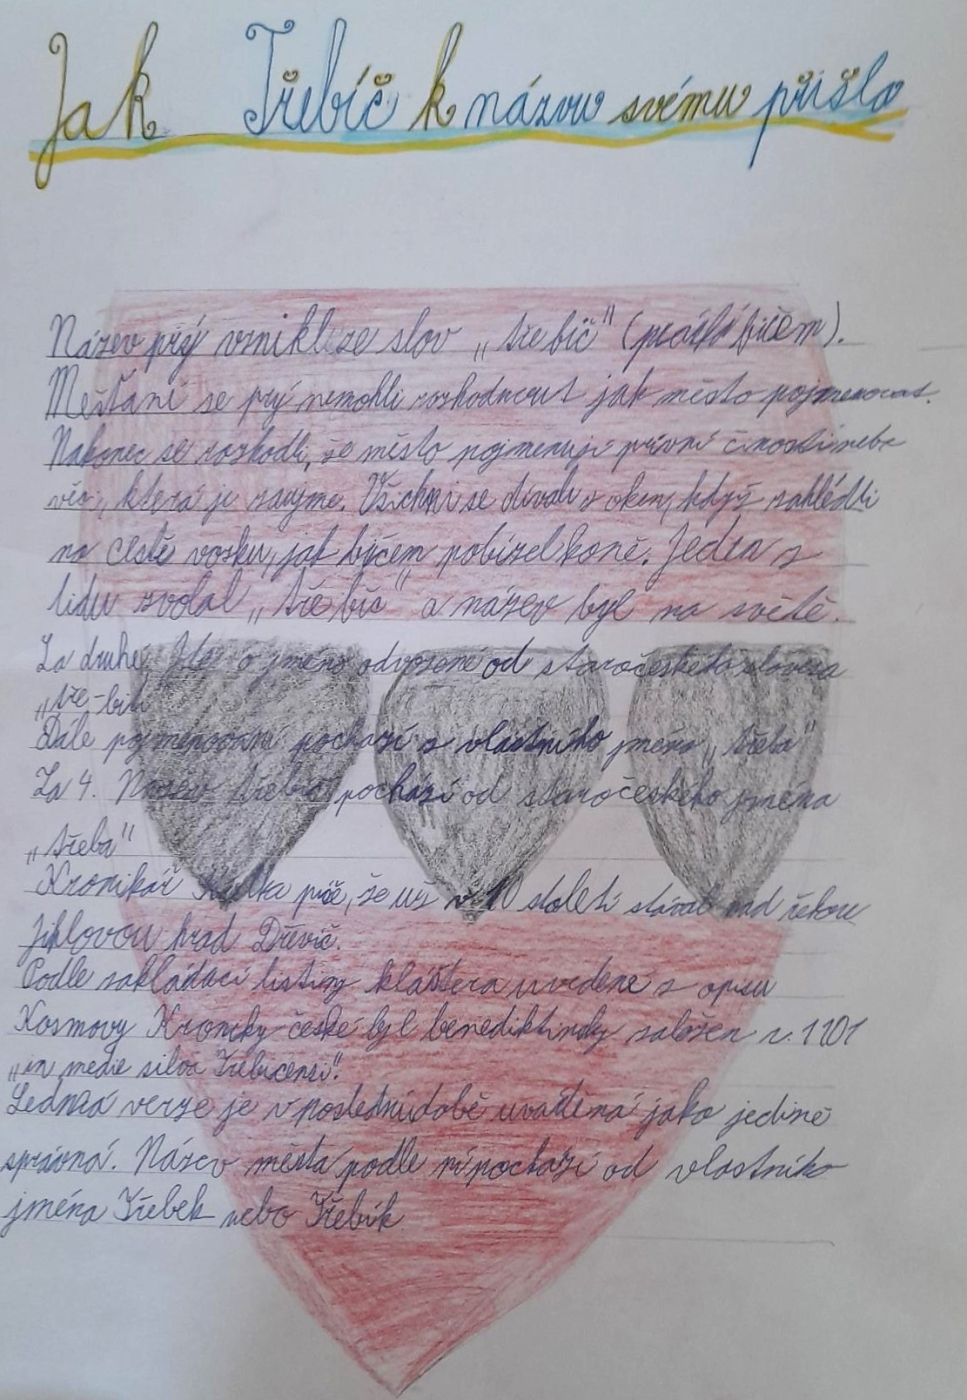 Jak Třebíč k názvu svému přišla
Název prý vznikl ze slov „třebič" (práskl bičem).
Měšťané se prý nemohli rozhodnout jak město pojmenovat.
Nakonec se rozhodli, že město pojmenují první činností nebo
věc, která je zaujme. Všichni se dívali z oken, když zahlédli
na cestě vozku, jak bičem pobízel koně. Jeden z
lidu zvolal „třebíč" a název byl na světě.
Za druhé, Jde o jméno odvozené od staročeského slovesa
„tře-biti
Dále pojmenování pochází z vlastního jména „třeba"
Za 4. Název třebíč pochází od staročeského jména
„třeba"
Kronikář píše, že už v 10 století stával nad řekou
Jihlavou hrad Dřevíč.
Podle zakládací listiny kláštera uvedené z opisu
Kosmovy Kroniky české byl benediktiny založen r. 1101
„in medie silva Trebicensi".
Sedmá verze je v poslední době uváděná jako jedině
správná. Název města podle ní pochází od vlastního
jména Třebek nebo Třebík